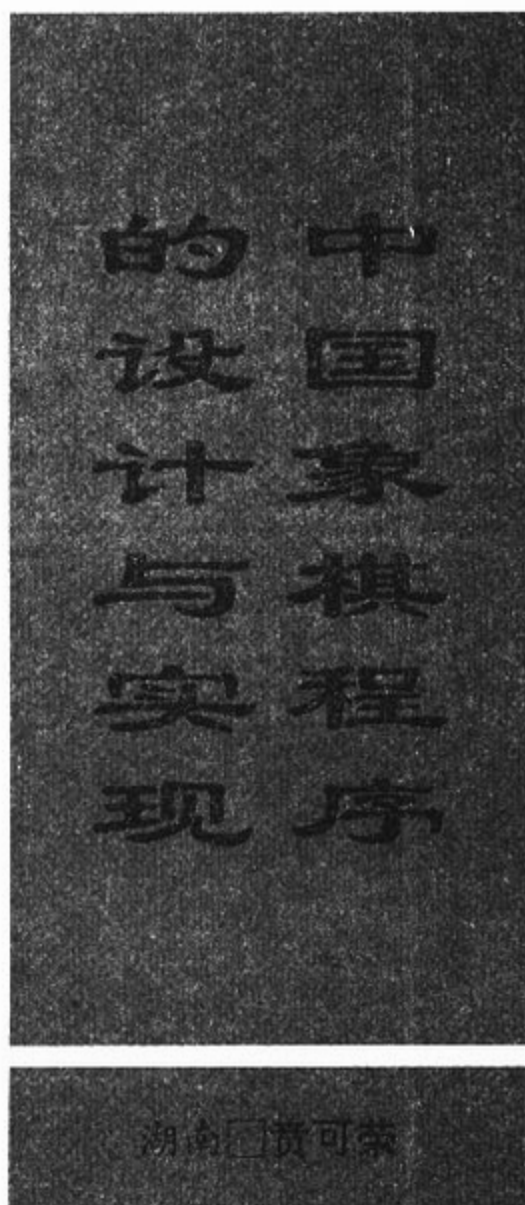 中国象棋程序
的设计与实现
湖南□贲可荣